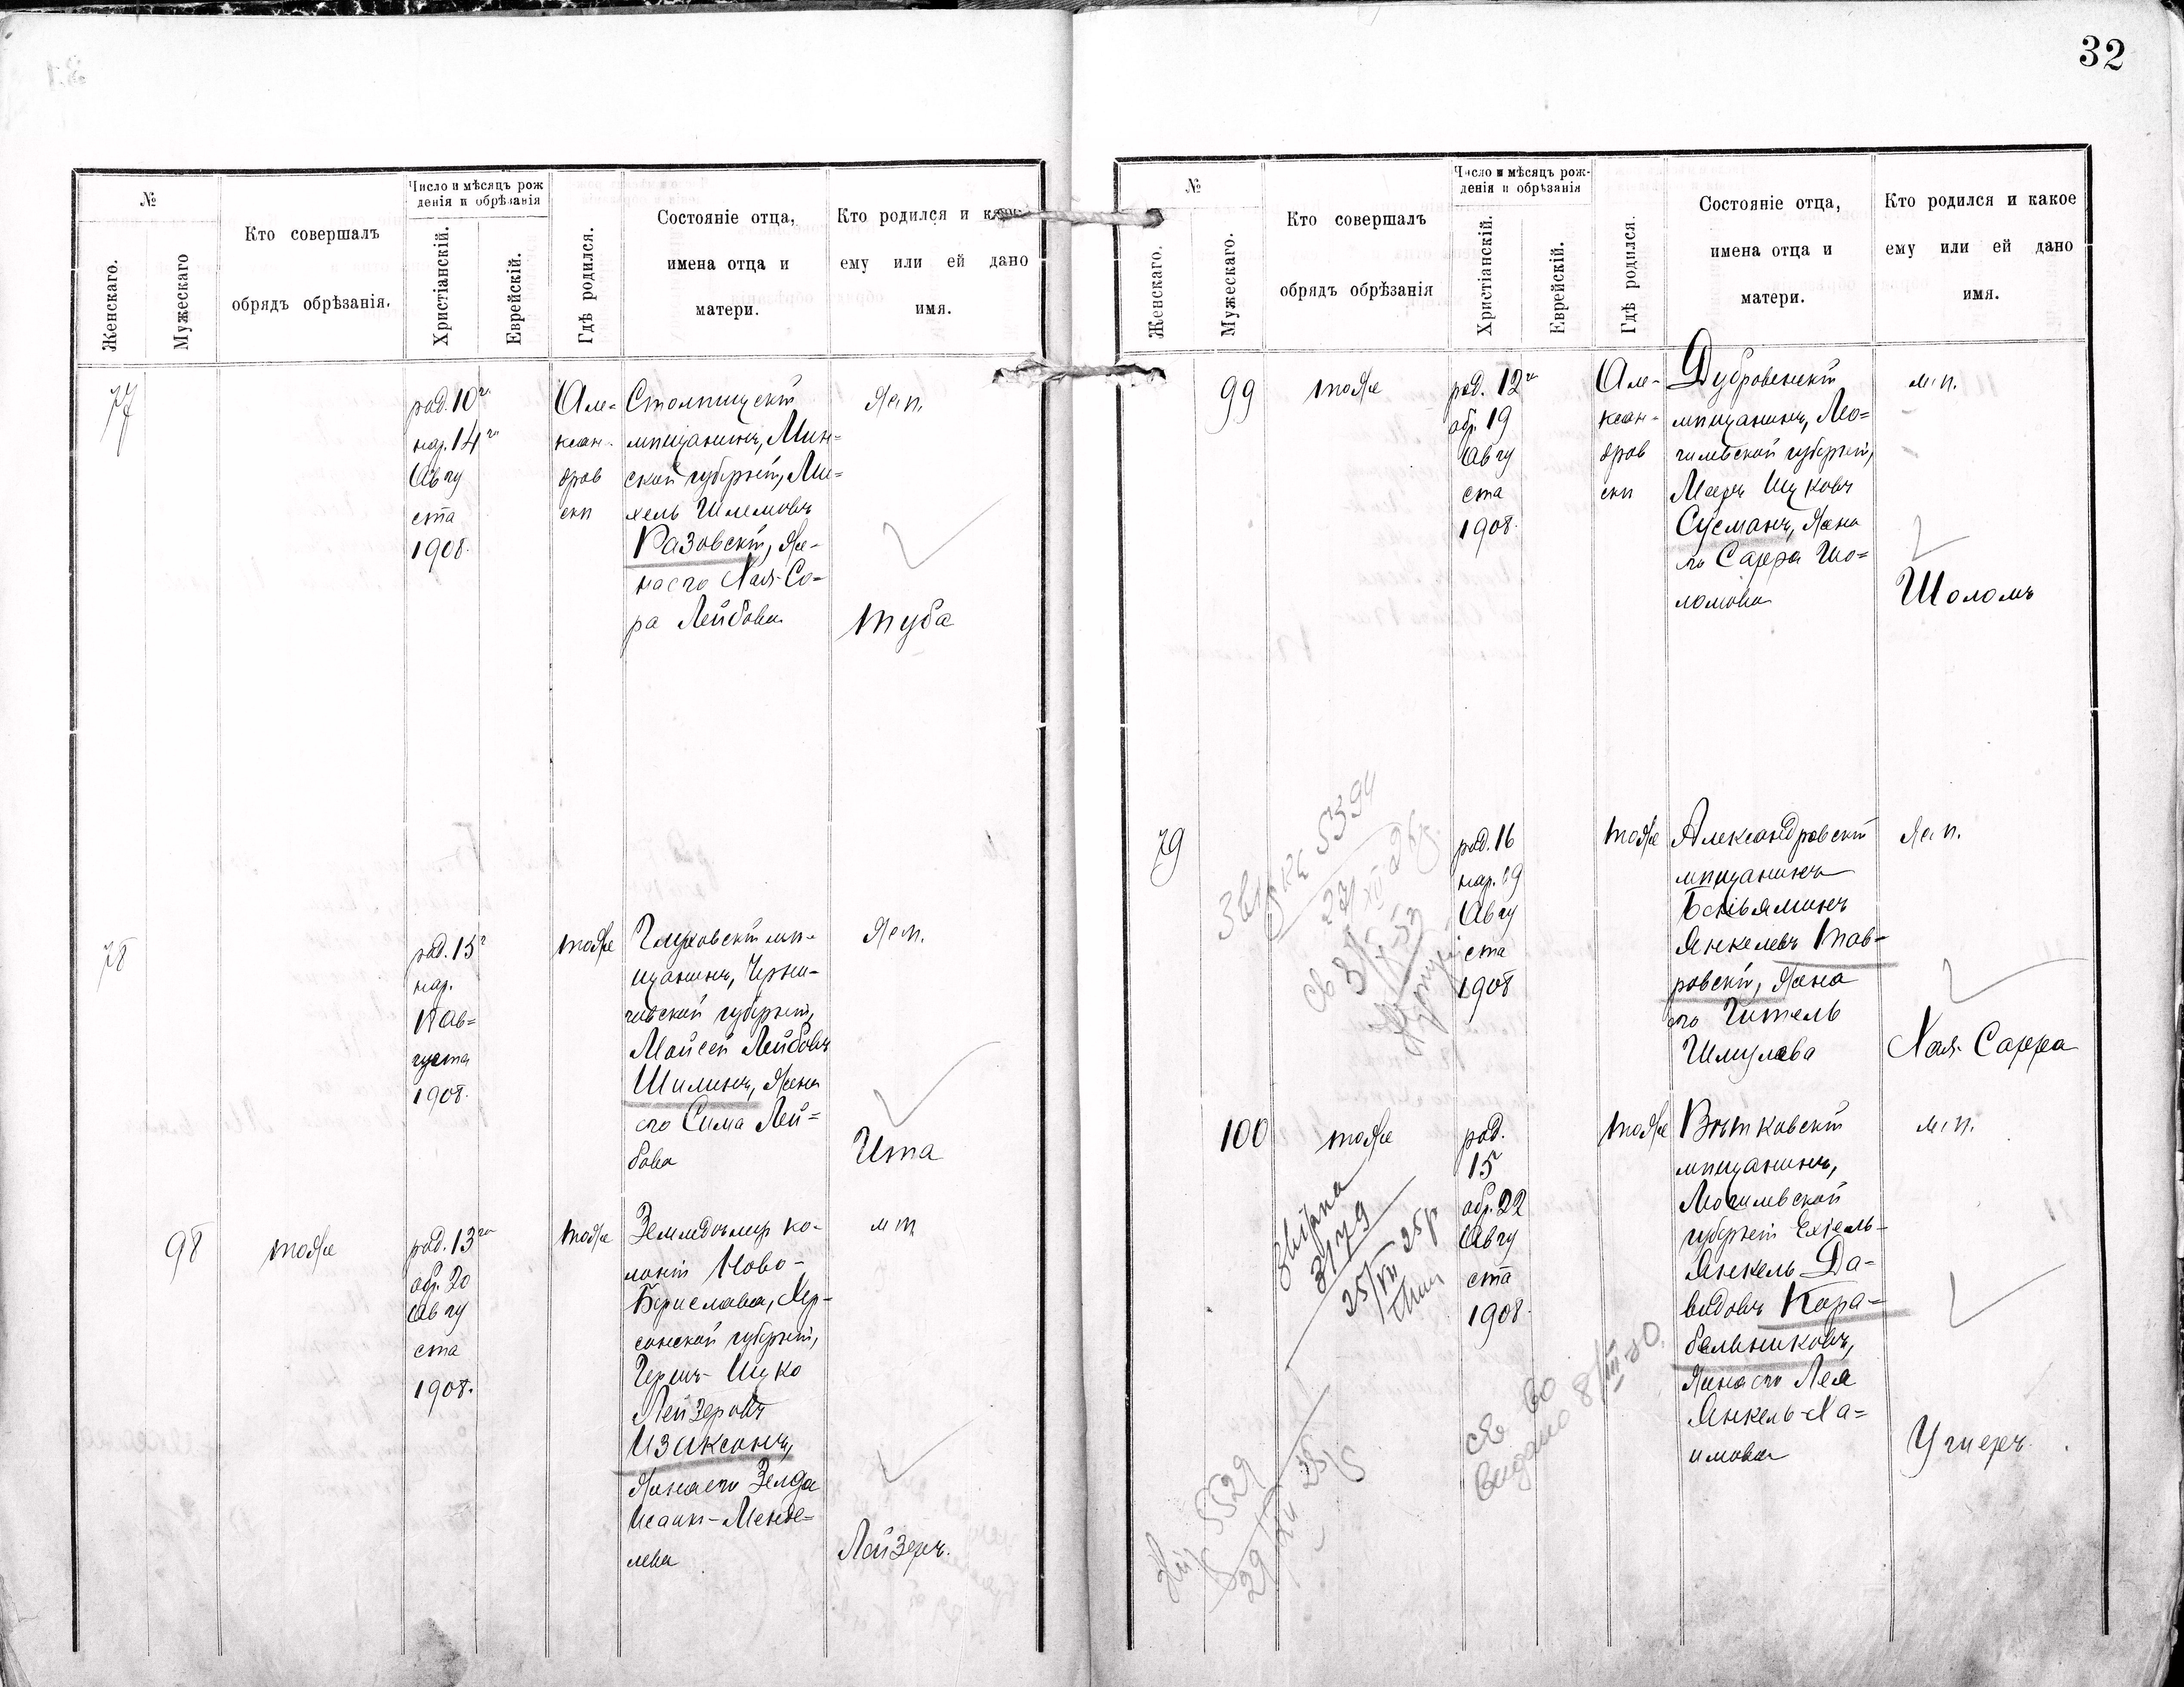 32
№
Женскаго.
Мужескаго
Кто совершалъ
обрядъ обрѣзанія.
Число и мѣсяцъ рож
денія и обрѣзанія
Христіанскій.
Еврейскій.
Гдѣ родился.
Состояніе отца,
имена отца и
матери.
Кто родился и как
ему или ей дано
имя.
77
род. 10го
нар. 14го
Авгу
ста
1908.
Але=
ксан-
дров
скѣ
Столпицскій
мѣщанинъ, Мин=
ской губерніи, Ми=
хель Шлемовъ
Разовскій, же-
на его Хая-Со=
ра Лейбова
жен.
Туба
78
род. 15г
нар.
17 Ав=
густа
1908.
тоже
Глуховскій мѣ-
щанинъ, Черни-
говской губерніи,
Мойсей Лейбовъ
Шилинъ, жена
его Сима Лей=
бова
жен.
Ита
98
тоже
род. 13го
обр. 20
Авгу
ста
1908.
тоже
Земледѣлецъ ко-
лоніи Ново-
Берислава, Хер-
сонской губерніи,
Гершъ-Ицко
Лейзеровъ
Изаксонъ,
жена его Зелда
Исаакъ-Менде=
лева
м п
Лейзеръ.
№
Женскаго.
Мужескаго.
Кто совершалъ
обрядъ обрѣзанія
Число и мѣсяцъ рож-
денія и обрѣзанія
Христіанскій.
Еврейскій.
Гдѣ родился
Состояніе отца,
имена отца и
матери.
Кто родился и какое
ему или ей дано
имя.
99
тоже
род. 12го
обр. 19
Авгу
ста
1908.
Але-
ксан-
дров
скѣ
Дубровенскій
мѣщанинъ, Мо=
гилевской губерніи,
Ицковъ
Сусманъ, жена
его Сарра Шо=
ломова
м п.
Шоломъ
79
род. 16
нар. 19
Авгу
ста
1908
тоже
Александровскій
мѣщанинъ
Беньяминъ
Янкелевъ Тав-
ровскій, жена
его Гитель
Шмулева
же п.
Хая-Сарра
5394
100
тоже
род.
15г
обр. 22
Авгу
ста
1908.
тоже
Вѣтковскій
мѣщанинъ,
Могилевской
губерніи Ехіель-
Янкель Да-
видовъ Кора-
бельниковъ,
жена его Лея
Янкель-Ха=
имова
м п.
Ушеръ.
3179
25/VII 25р
5529
видано 8/III-40.